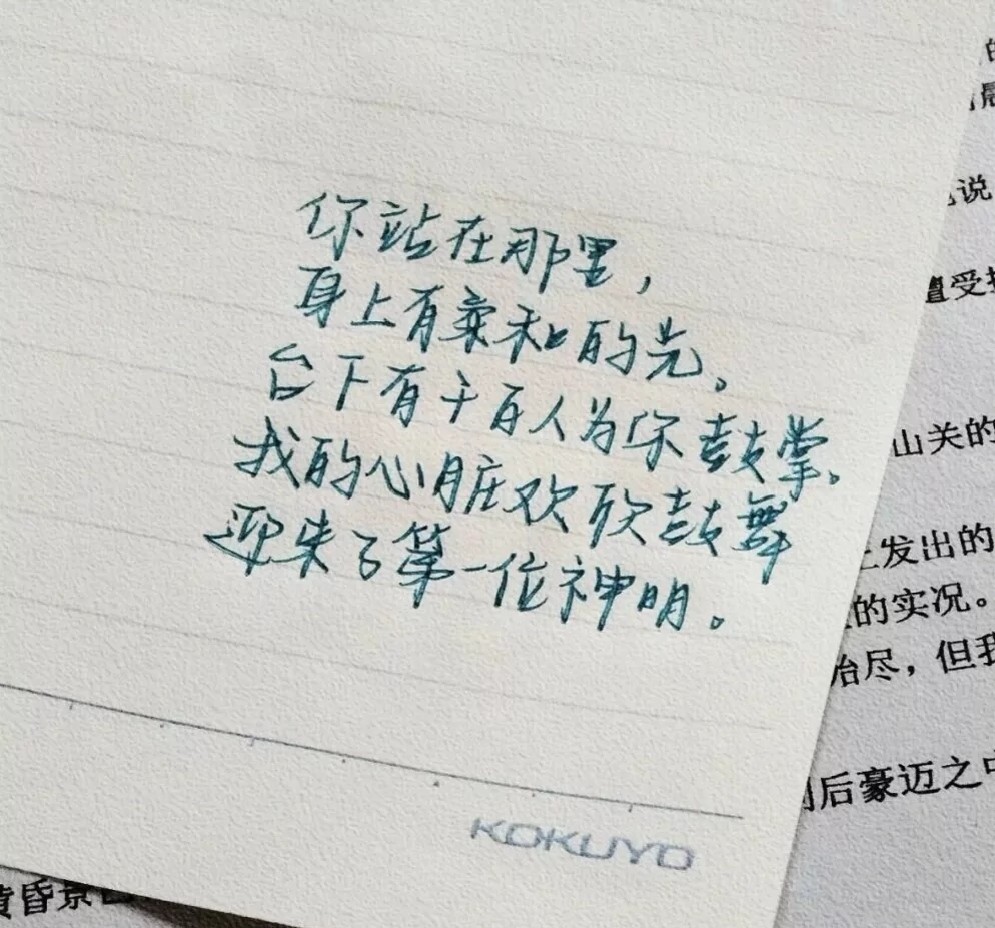 你站在那里，
身上有柔和的光。
台下有千百人为你鼓掌。
我的心脏欢欣鼓舞
迎来了第一位神明。
KOKUYO
的
说
遭受
山关的
发出的
的实况。
殆尽，但我
后豪迈之中
黄昏景色